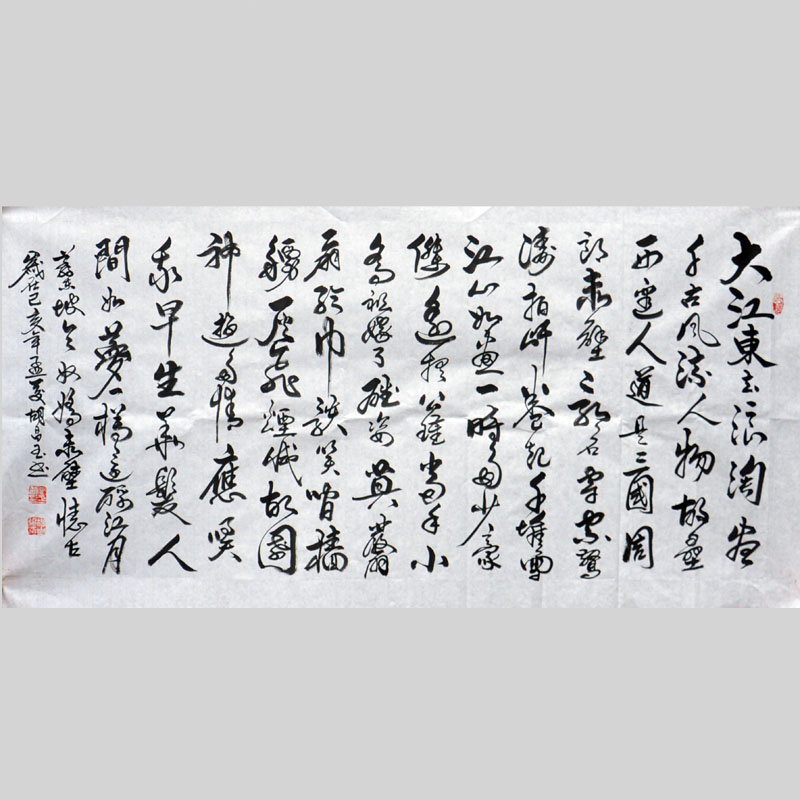 大江東去浪淘盡
千古風流人物故壘
西邊人道是三國周
郎赤壁亂石穿空驚
濤拍岸捲起千堆雪
江山如畫一時多少豪
傑遙想公瑾當年小
喬初嫁了雄姿英發羽
扇綸巾談笑間檣
艣灰飛煙滅故國
神遊多情應笑
我早生華髮人
間如夢一樽還酹江月
蘇東坡念奴嬌赤壁懷古
歲在己亥年孟夏胡昌玉書